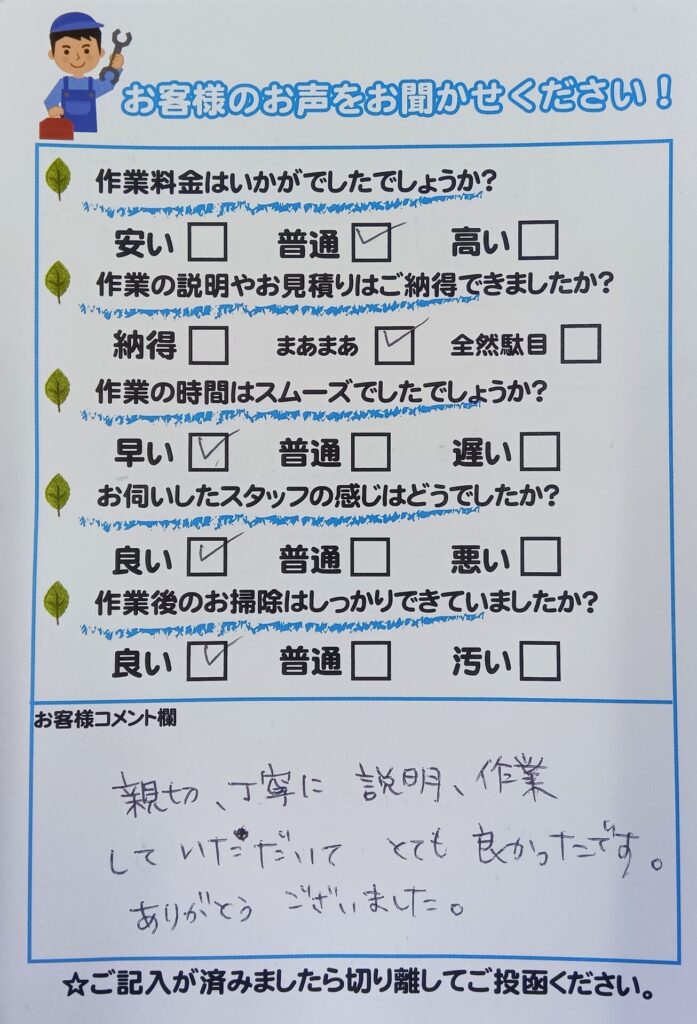 お客様のお声をお聞かせください!
作業料金はいかがでしたでしょうか?
安い □ 普通 ☑ 高い □
作業の説明やお見積りはご納得できましたか?
納得 □ まあまあ ☑ 全然駄目 □
作業の時間はスムーズでしたでしょうか?
早い ☑ 普通 □ 遅い □
お伺いしたスタッフの感じはどうでしたか?
良い ☑ 普通 □ 悪い □
作業後のお掃除はしっかりできていましたか?
良い ☑ 普通 □ 汚い □
お客様コメント欄
親切、丁寧に 説明、作業
して いただいて とても 良かったです。
ありがとう ございました。
☆ご記入が済みましたら切り離してご投函ください。